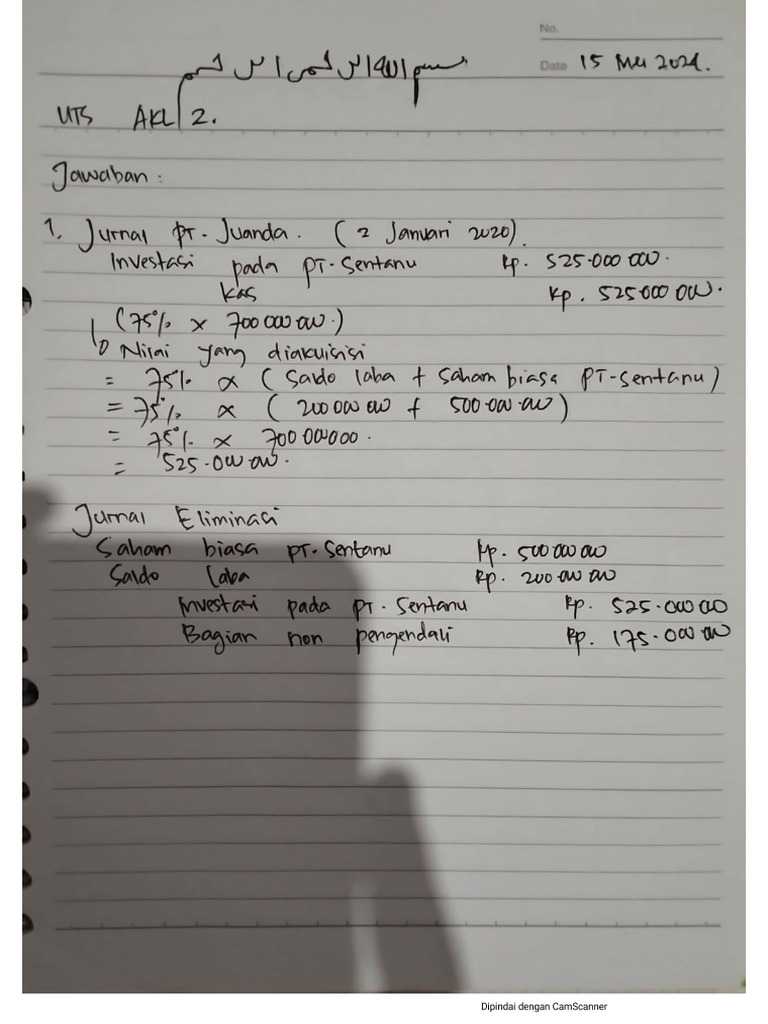 No.
بسم الله الرحمن الرحيم
Date 15 Mei 2024.
UTS AKL 2.
Jawaban :
1. Jurnal PT. Juanda. (2 Januari 2020).
Investasi pada PT. Sentanu Rp. 525.000 000.
Kas Rp. 525 000 000.
(75% x 700 000 000.)
Nilai yang diakuisisi
= 75% x ( Saldo laba + Saham biasa PT. Sentanu )
= 75% x ( 200 000 000 + 500.000.000 )
= 75% x 700 000000.
= 525.000 000.
Jurnal Eliminasi
Saham biasa PT. Sentanu Rp. 500 000 000
Saldo laba Rp. 200.000 000
Investasi pada PT. Sentanu Rp. 525.000 000
Bagian non pengendali Rp. 175.000 000
Dipindai dengan CamScanner